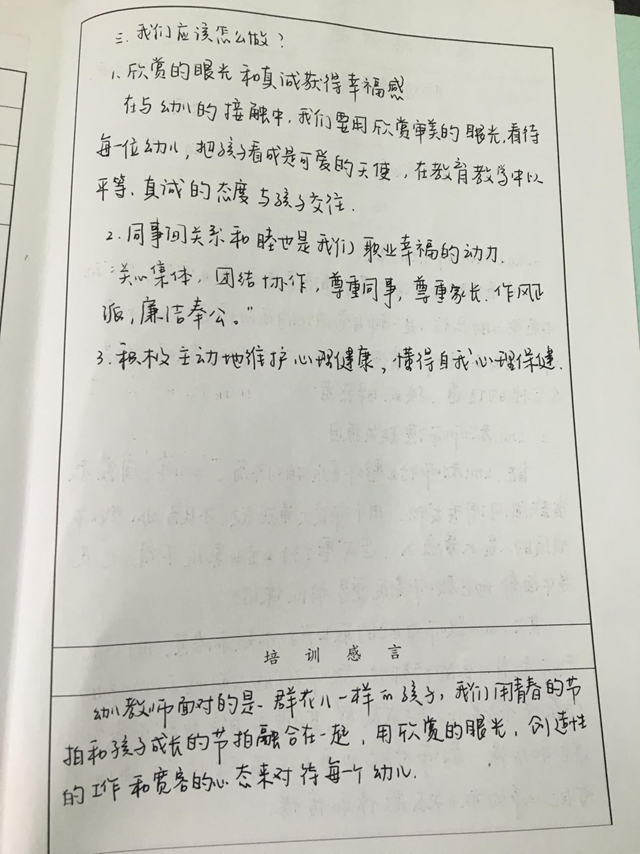 三.我们应该怎么做?
1.欣赏的眼光和真诚获得幸福感
在与幼儿的接触中,我们要用欣赏审美的眼光,看待
每一位幼儿,把孩子看成是可爱的天使,在教育教学中以
平等、真诚的态度与孩子交往.
2.同事间关系和睦也是我们职业幸福的动力.
"关心集体,团结协作,尊重同事,尊重家长.作风正
派,廉洁奉公。"
3.积极主动地维护心理健康,懂得自我心理保健.
培训感言
幼儿教师面对的是一群花儿一样的孩子,我们用青春的节
拍和孩子成长的节拍融合在一起,用欣赏的眼光,创造性
的工作和宽容的心态来对待每个幼儿.